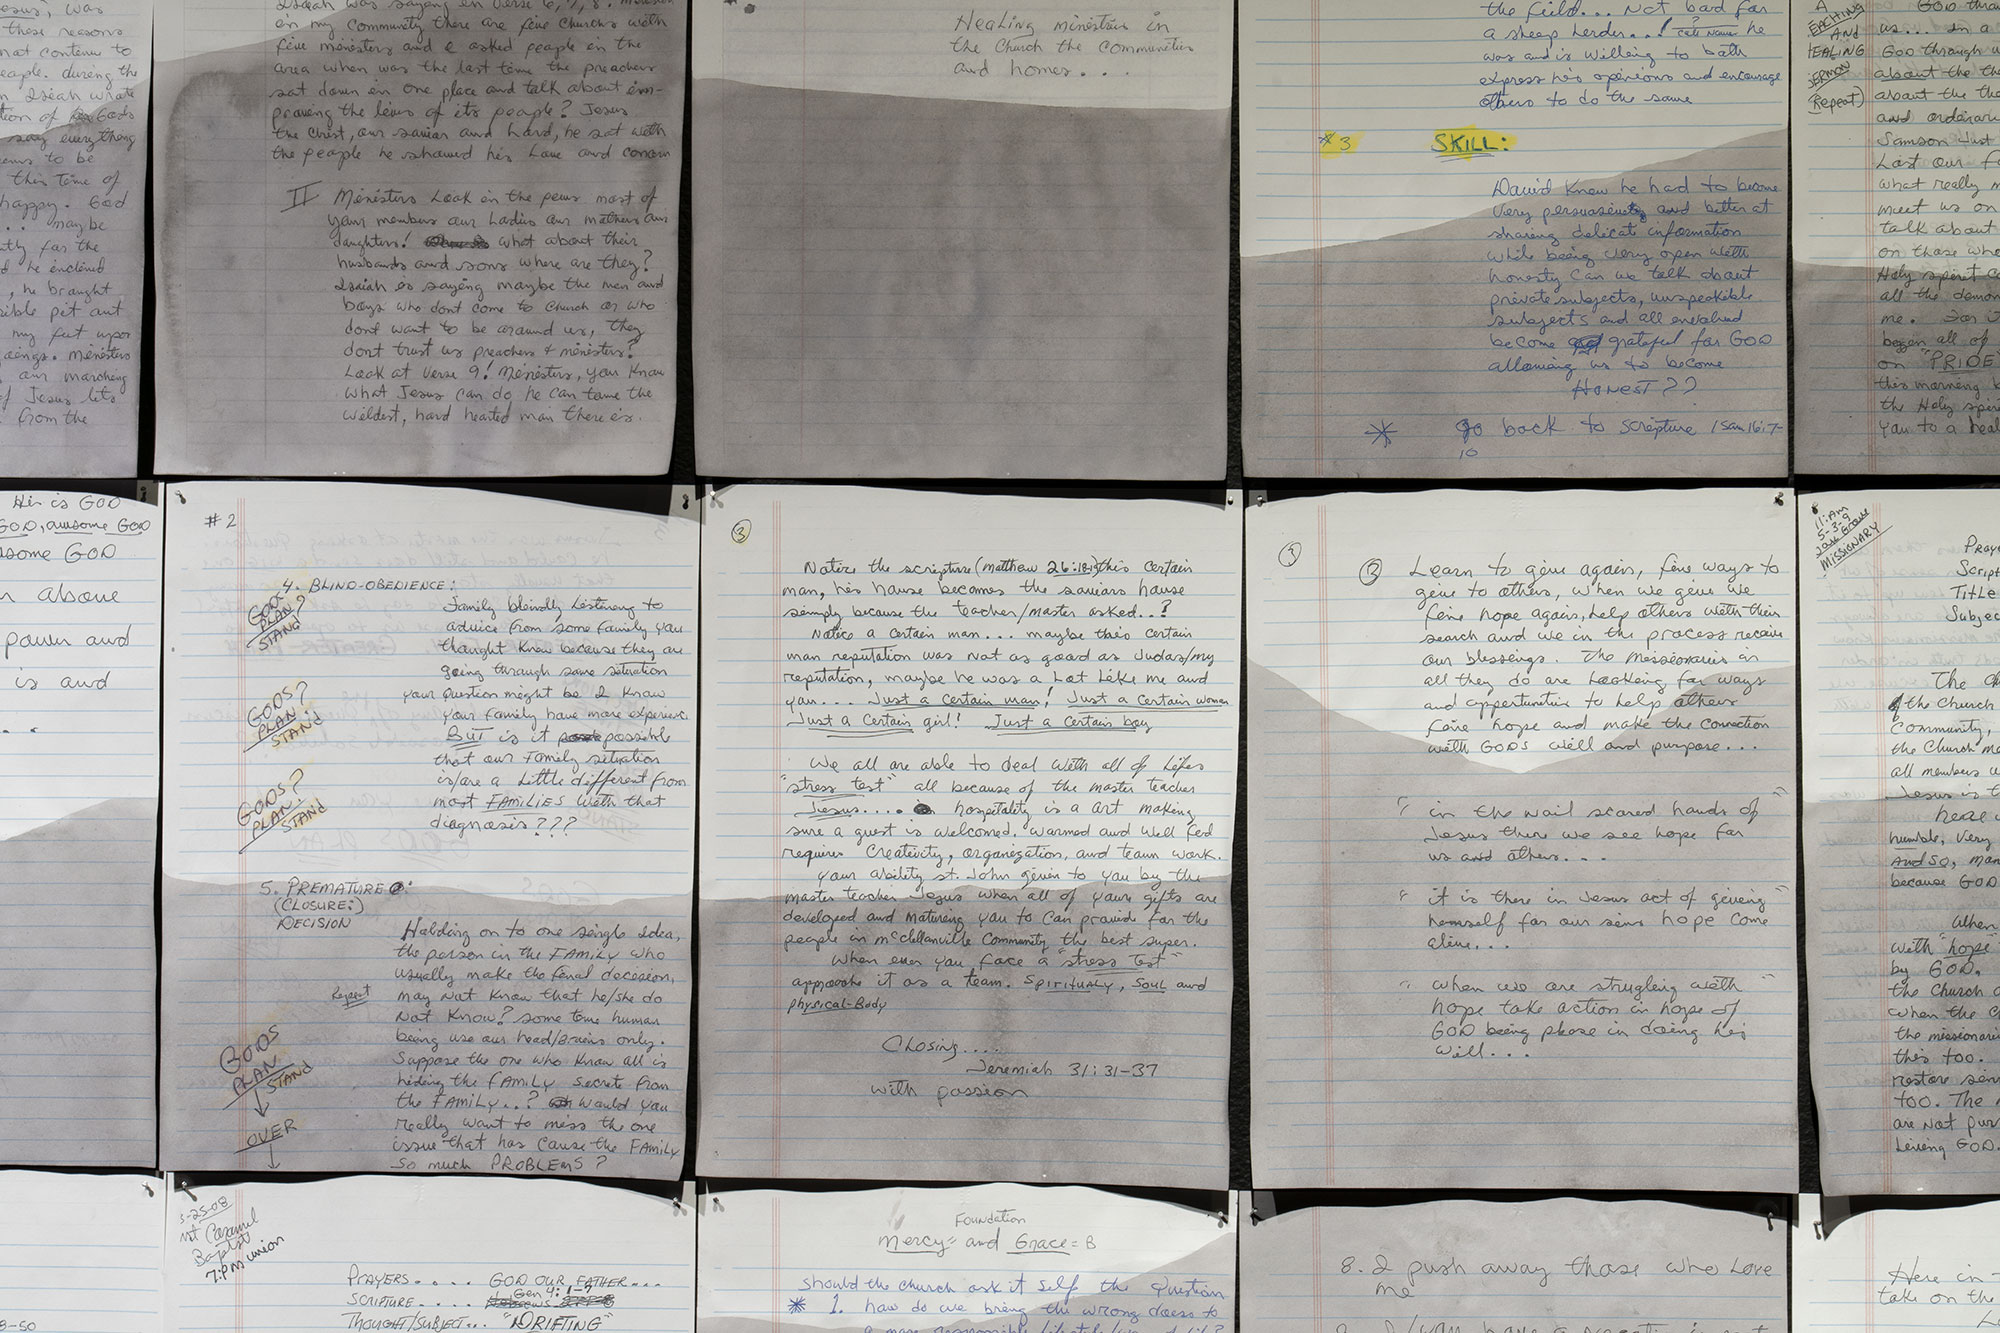 Jesus, was
these reasons
not continue to
people. during the
Isiah wrote
tion of his Gods
say everything
seems to be
this time of
happy. God
... maybe
tly for the
d he enclined
, he brought
rible pit out
my feet upon
oeings. ministers
our marching
of Jesus lets
from the
Isiah was sayeng in verse 6, 7, 8.
in my community there are five churchs with
five ministers and I asked people in the
area when was the last time the preachers
sat down in one place and talk about im-
proving the lives of its people? Jesus
the Christ, our savior and Lord, he sat with
the people he showed his Love and concern
II Ministers Look in the pews most of
your members our Ladies our mothers our
daughters! what about their
husbands and sons where are they?
Isaiah is sayeng maybe the men and
boys who dont come to church or who
dont want to be around us, they
dont trust us preachers & ministers?
Look at verse 9! Ministers, you Know
what Jesus can do he can tame the
wildest, hard hearted man there is.
Healing ministries in
the Church the communities
and homes...
the field... Not bad for
a sheep herder...! he
was and is willing to both
express his opinions and encourage
others to do the same
*3 SKILL:
David Knew he had to become
very persuasive and better at
sharing delicate information
while being very open with
honesty can we talk about
private subjects, unspeakible
subjects and all involved
become grateful for GOD
allowing us to become
HONEST??
* go back to scripture 1 Sam 16:7-
10
A
TEACHING
AND
HEALING
SERMON
(Repeat)
GOD thro
us... in a
God through
about the th
about the
and ordinar
Samson Just
Last our f
what really m
meet us on
talk about
on those who
Holy spirit c
all the demon
me. For i
began all of
on "PRIDE
this morning b
the Holy spiri
you to a heal
Her is GOD
GOD, awsome GOD
some GOD
above
power and
is and
#2
4. BLIND-OBEDIENCE:
GODS?
PLAN
STAND
family blindly Listening to
advice from some family you
thought Knew because they are
going through same situation
your question might be I Know
your family have more experience
BUT is it possible
that our family situation
is/are a Little different from
most FAMILIES with that
diagnosis???
GODS?
PLAN
STAND
GODS?
PLAN
STAND
5. PREMATURE:
(CLOSURE:)
DECISION
Holding on to one single idea,
the person in the FAMILY who
usually make the final decesion,
Repeat may Not Know that he/she do
Not Know? some time human
being use our head/Brains only.
Suppose the one who Know all is
hiding the FAMILY secrets from
the FAMILY..? would you
really want to miss the one
issue that has cause the FAMILY
so much PROBLEMS?
GODS
PLAN
STAND
OVER
③
Notice the scripture (matthew 26:18) this certain
man, his house becomes the saviors house
simply because the teacher/master asked..?
Notice a certain man... maybe this certain
man reputation was not as good as Judas/my
reputation, maybe he was a Lot Like me and
you... Just a certain man! Just a certain woman
Just a Certain girl! Just a Certain boy
We all are able to deal with all of Lifes
"stress test" all because of the master teacher
Jesus.... hospitality is a art making
sure a guest is welcomed. warmed and well fed
requires creativity, organization, and team work.
your ability st. John given to you by the
master teacher Jesus when all of youre gifts are
developed and maturing you to can provide for the
people in McClellanville Community the best super.
When ever you face a "stress Test"
approache it as a team. Spiritualy, Soul and
Physical-Body
Closing....
Jeremiah 31:31-37
with passion
② Learn to give again, five ways to
give to others, when we give we
fine hope again, help others with their
search and we in the process receive
our blessings. The missionaries in
all they do are Looking for ways
and opportunities to help others
fine hope and make the connection
with GODS will and purpose...
" in the nail scared hands of "
Jesus there we see hope for
us and others....
" it is there in Jesus act of giveing "
himself for our sins hope come
alive...
" when we are strugling with "
hope take action in hope of
GOD being please in doing his
will...
11:Am
5-3-9
MISSIONARY
Praye
Script
Title
Subjec
The Ch
the Church
community,
the Church me
all members
Jesus is t
heal
humble, very
And so, man
because GOD
When
with "hope"
by GOD.
the Church
when the C
the missionari
this too.
restore
too. The
are Not pur
Living GOD.
-25-08
mt Carmel
Baptist
7:Pm union
PRAYERS..... GOD OUR FATHER...
Gen 4:1-7
SCRIPTURE....
THOUGHT/SUBJECT... "DRIFTING"
8-50
Foundation
Mercy= and Grace=B
should the church ask it self the question
* 1. how do we bring the wrong doers to
8. I push away those who Love
me
Here in
take on the